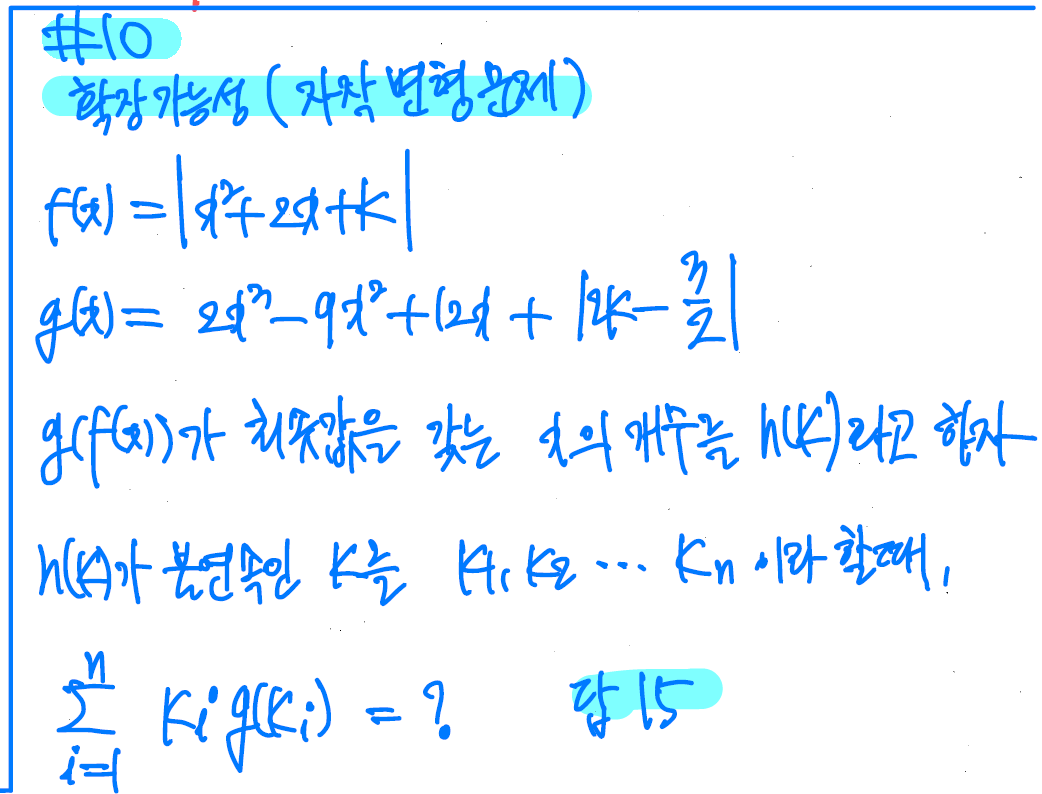 #10
확장가능성 (자작 변형문제)
f(x) = |x²+2x+k|
g(x) = 2x³-9x²+12x + |2k-3/2|
g(f(x))가 최솟값을 갖는 x의 개수를 h(k)라고 하자
h(k)가 불연속인 k를 k₁, k₂ ... kₙ 이라 할때,
∑ⁿᵢ₌₁ kᵢg(kᵢ) = ? 답 15